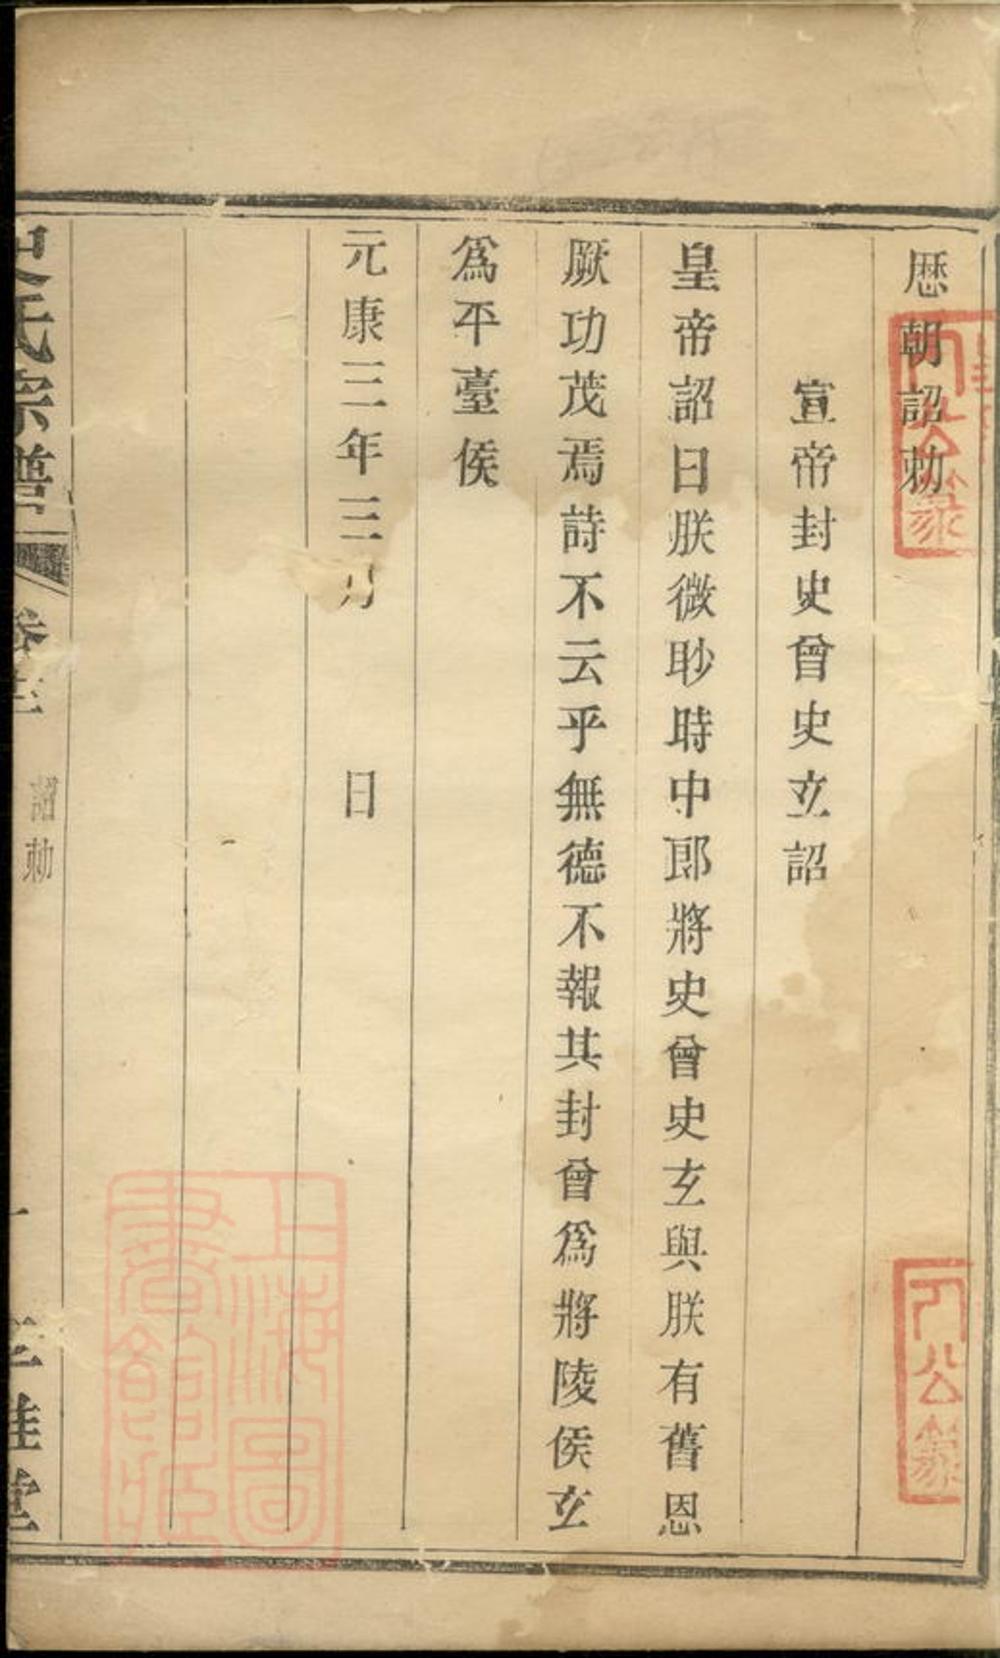 歷朝詔勅
宣帝封史曾史立詔
皇帝詔曰朕微眇時中郎將史曾史玄與朕有舊恩
厥功茂焉詩不云乎無德不報其封曾爲將陵侯玄
爲平臺侯
元康三年三月　　日
史氏宗譜　卷十二　詔勅　一
上海圖書館藏